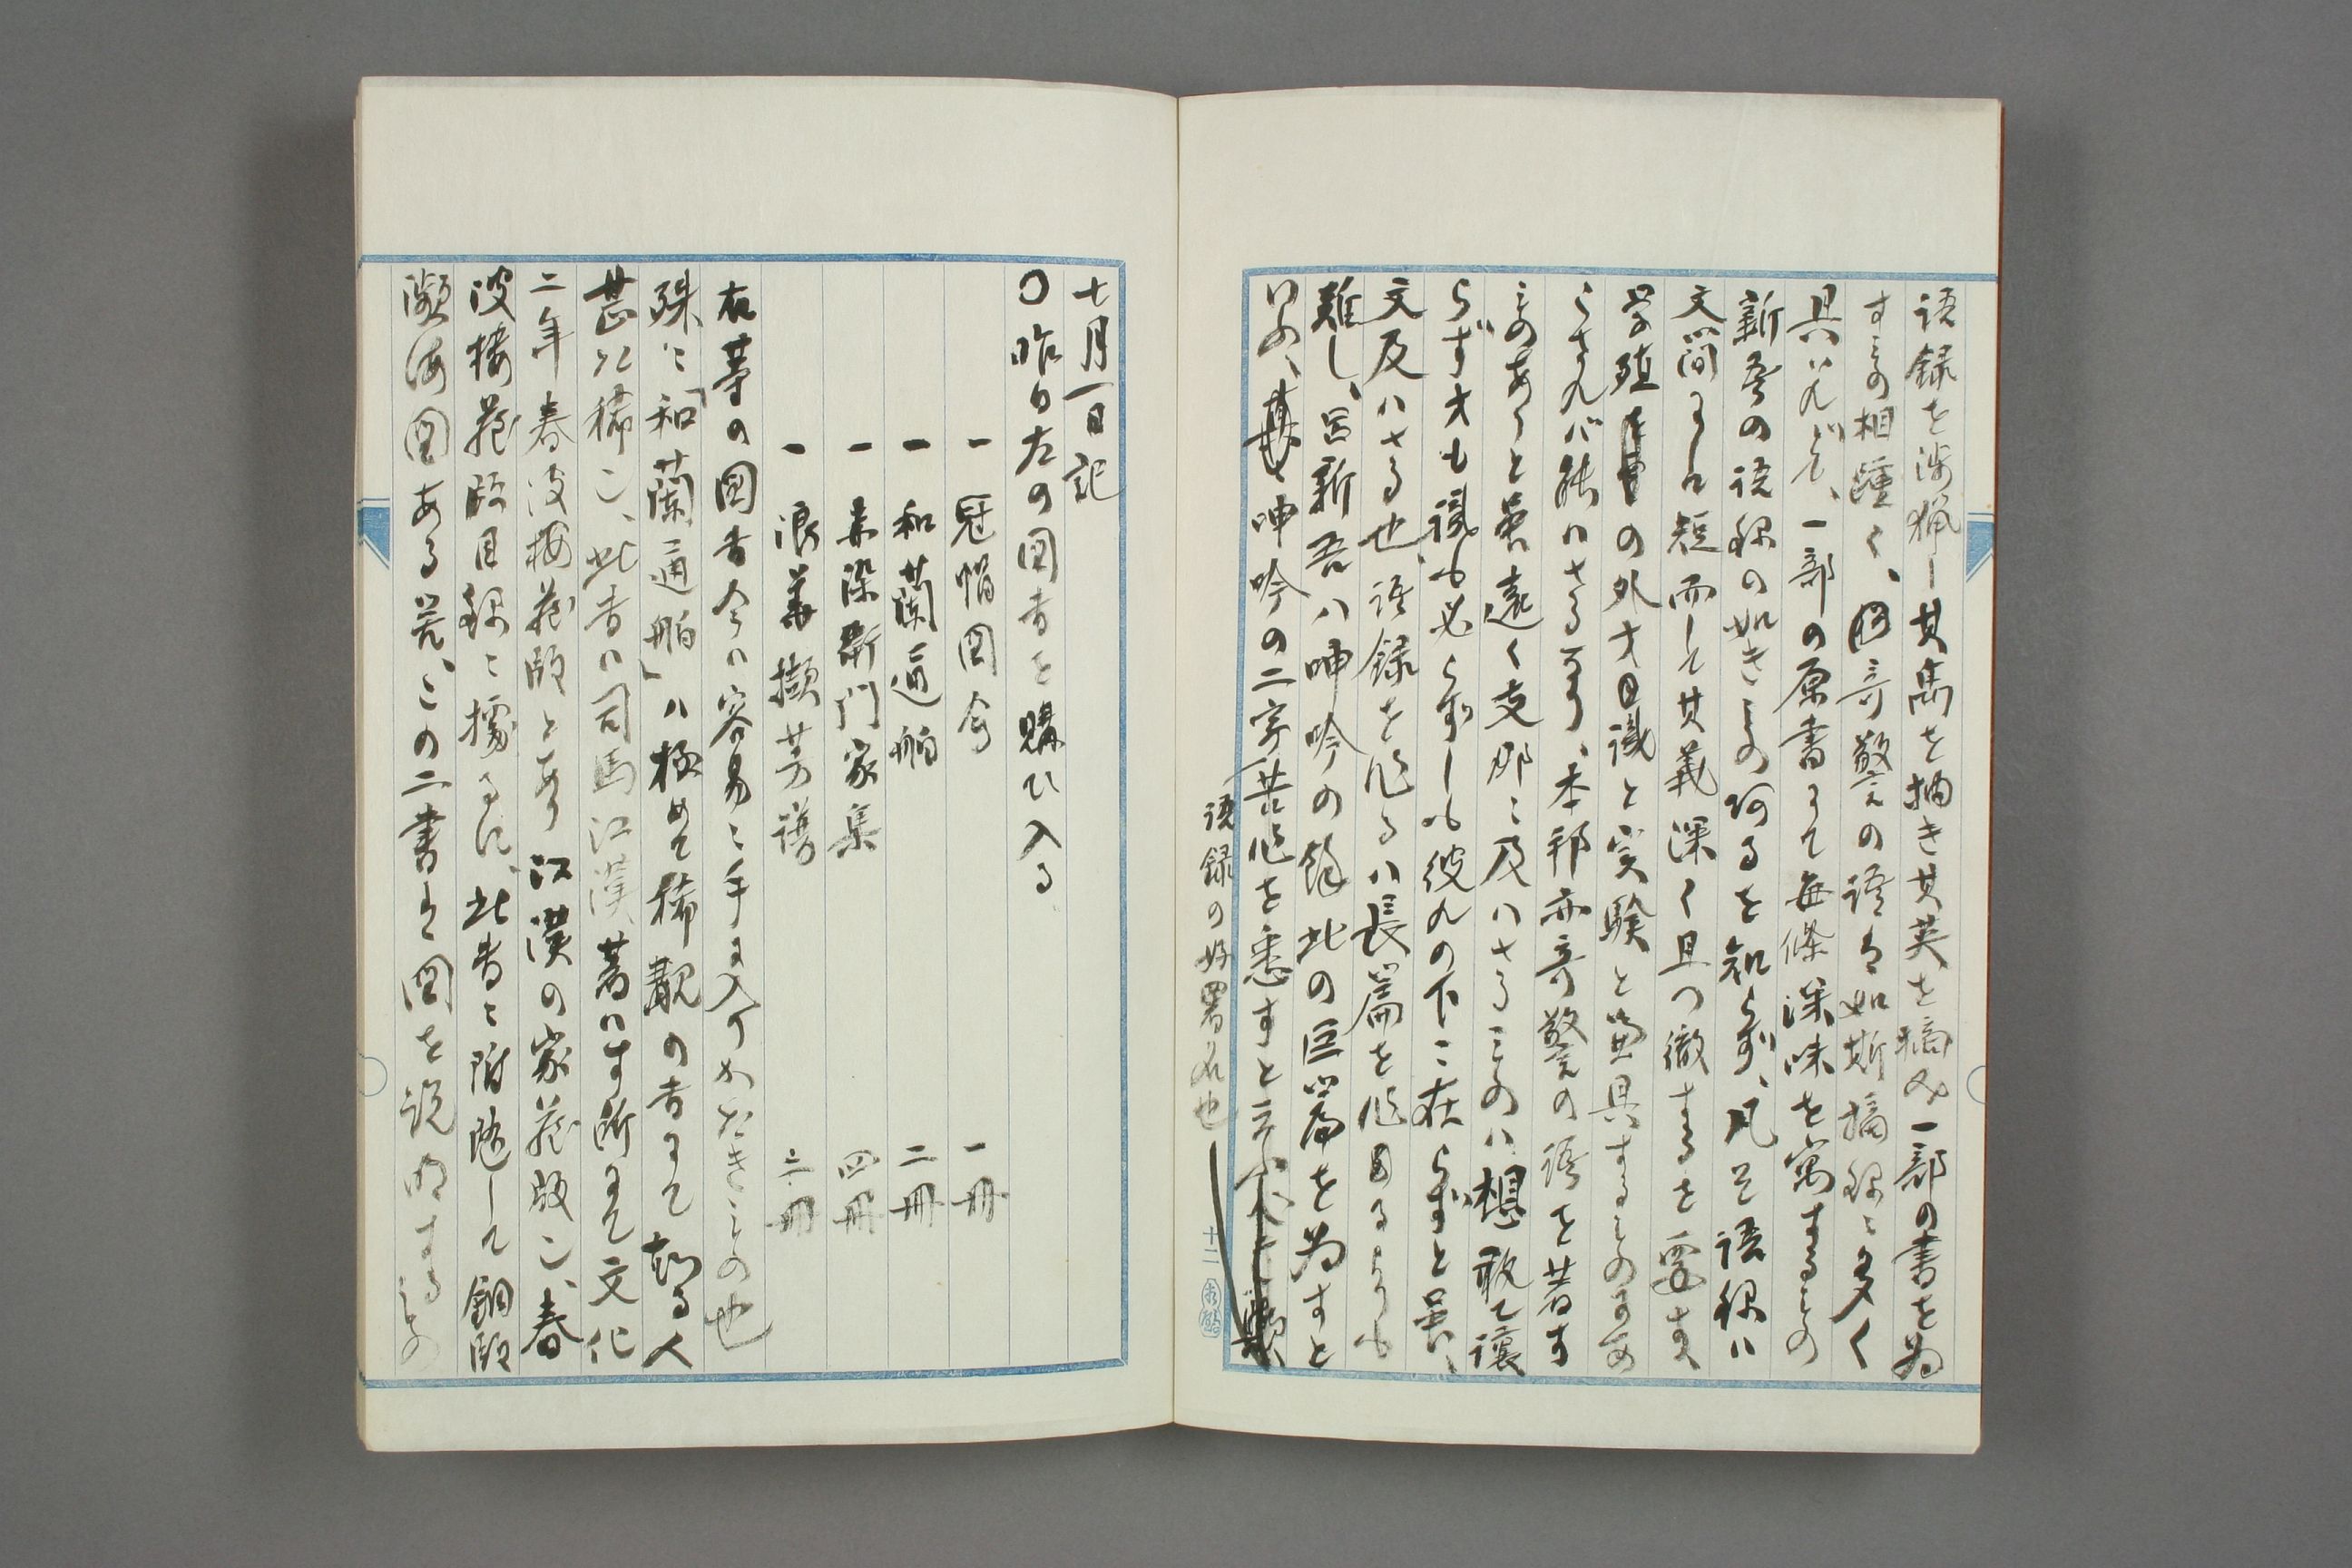 語録を渉猟し其雋を抽き其英を摘み一部の書を為
すもの相踵く、奇警の語にも如斯摘録に多く
具いれども、一部の原書にて毎條深味を寓するもの
新吾の語録の如きもの阿るを知らず、凡そ語録ハ
文簡にして短而して其義深く且つ徹するを要す
学殖の外才識と実験と兼具するものにあ
らされバ能ハさる所なり、本邦亦奇警の語を著す
ものありと雖遠く支那に及ハさるものハ想敢て譲
らず才も識も必らずしも彼れの下に在らずと雖、
文及ハさる也、語録を作るハ長篇を作るよりも
難し、呂新吾ハ呻吟の餘此の巨篇を為すと
いふ、呻吟の二字苦作を悉すと云ふべし
語録の好署名也
十二
七月一日記
〇昨日左の図書を購ひ入る
一 冠帽図会 一冊
一 和蘭通舶 二冊
一 朱染衛門家集 四冊
一 浪華擷芳譜 二冊
右等の図書今ハ容易に手に入りかたきもの也
殊に「和蘭通舶」ハ極めて稀覯の書にて知る人
甚た稀に、此書ハ司馬江漢著ハす所にて文化
二年春波楼蔵版とあり江漢の家蔵版に、春
波楼蔵版目録に據るに、此書に附随して銅版
瀕海図ある筈、この二書は図を説明するもの